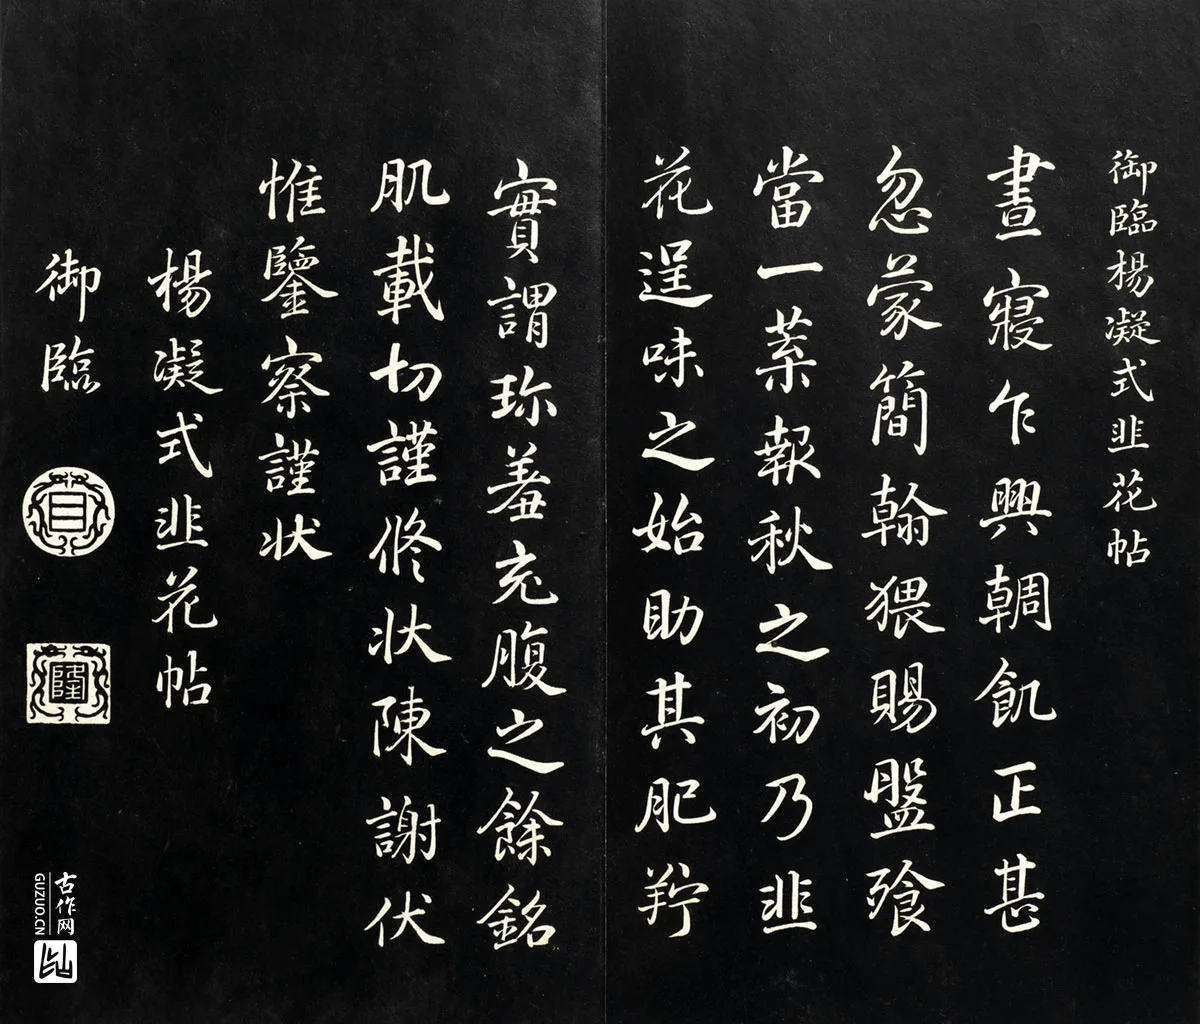 御臨楊凝式韭花帖
晝寢乍興輖飢正甚
忽蒙簡翰猥賜盤飱
當一葉報秋之初乃韭
花逞味之始助其肥羜
實謂珎羞充腹之餘銘
肌載切謹修狀陳謝伏
惟鑒察謹狀
楊凝式韭花帖
御臨
乾
隆
古作网
GUZUO.CN